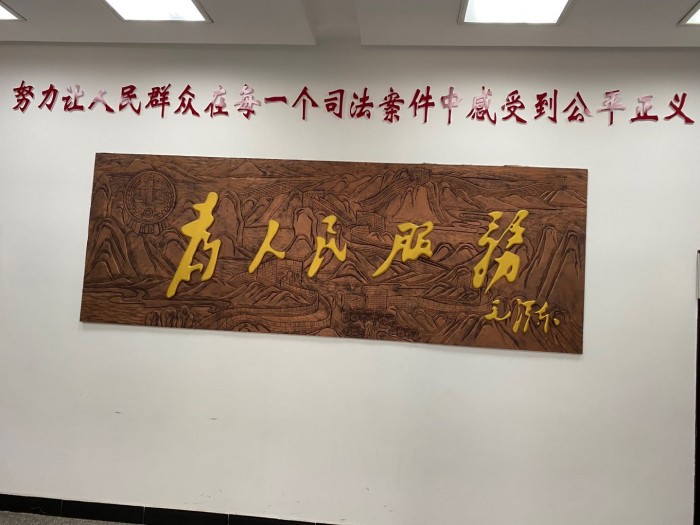 努力让人民群众在每一个司法案件中感受到公平正义
为人民服務
毛泽东